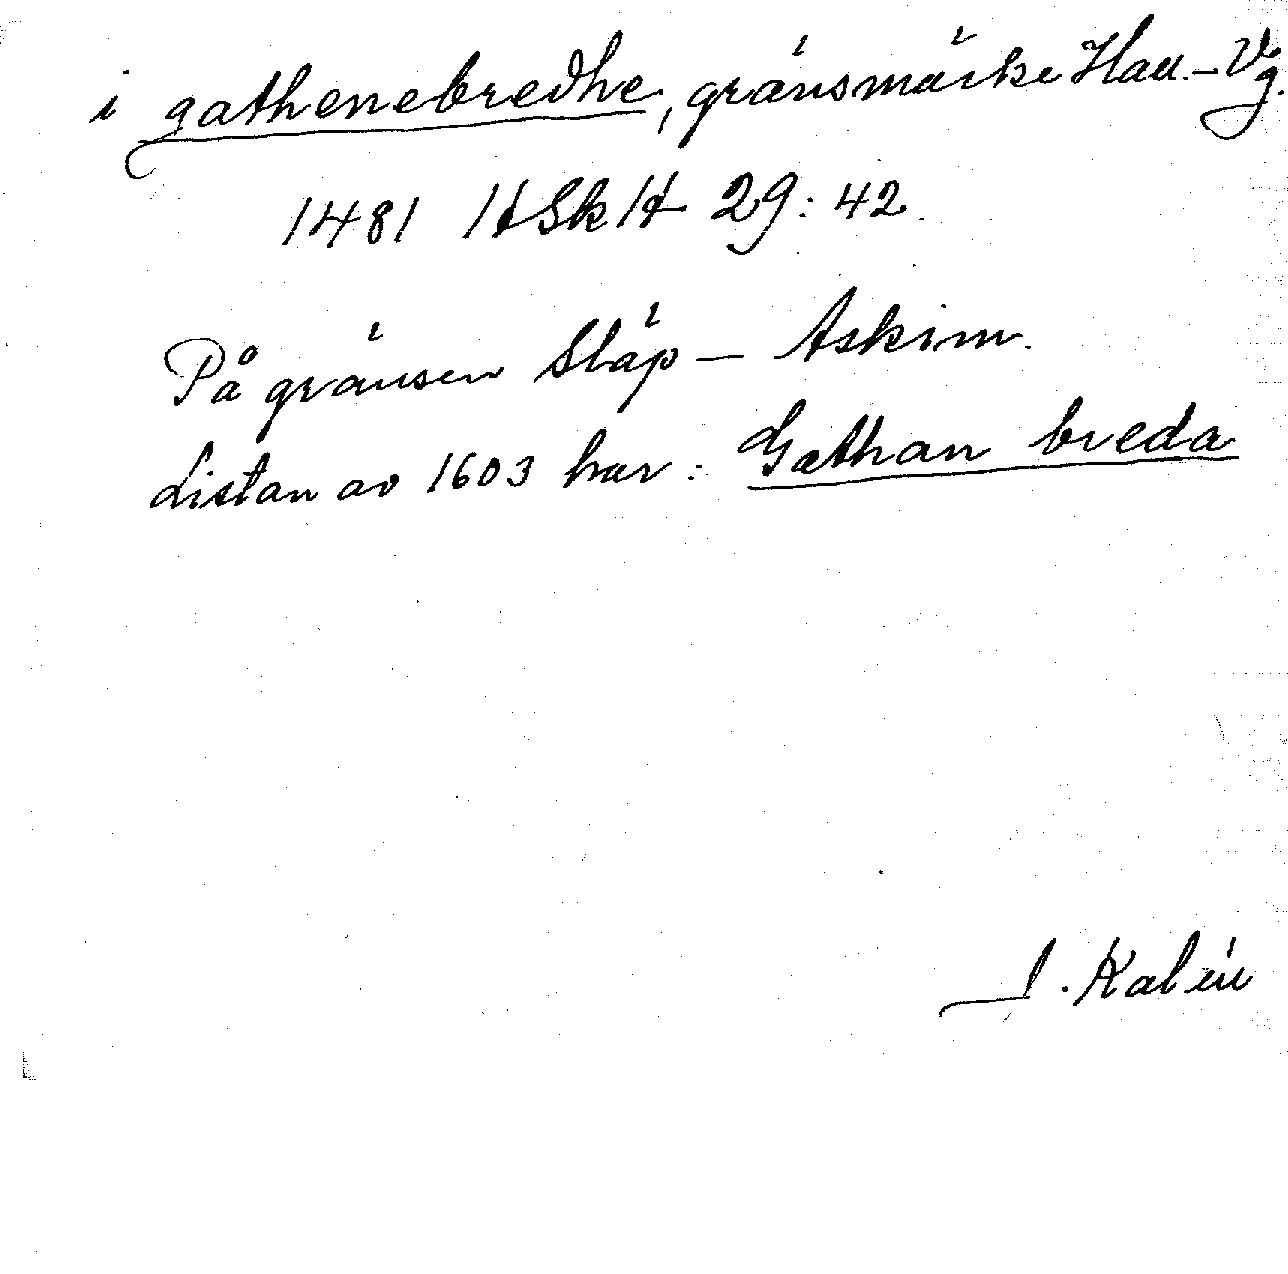 i gathenebredhe, gränsmärke Hall.-Vg.
1481 HSkH 29:42.
På gränsen Släp – Askim.
Listan av 1603 har: Gathan breda
J. Kalén